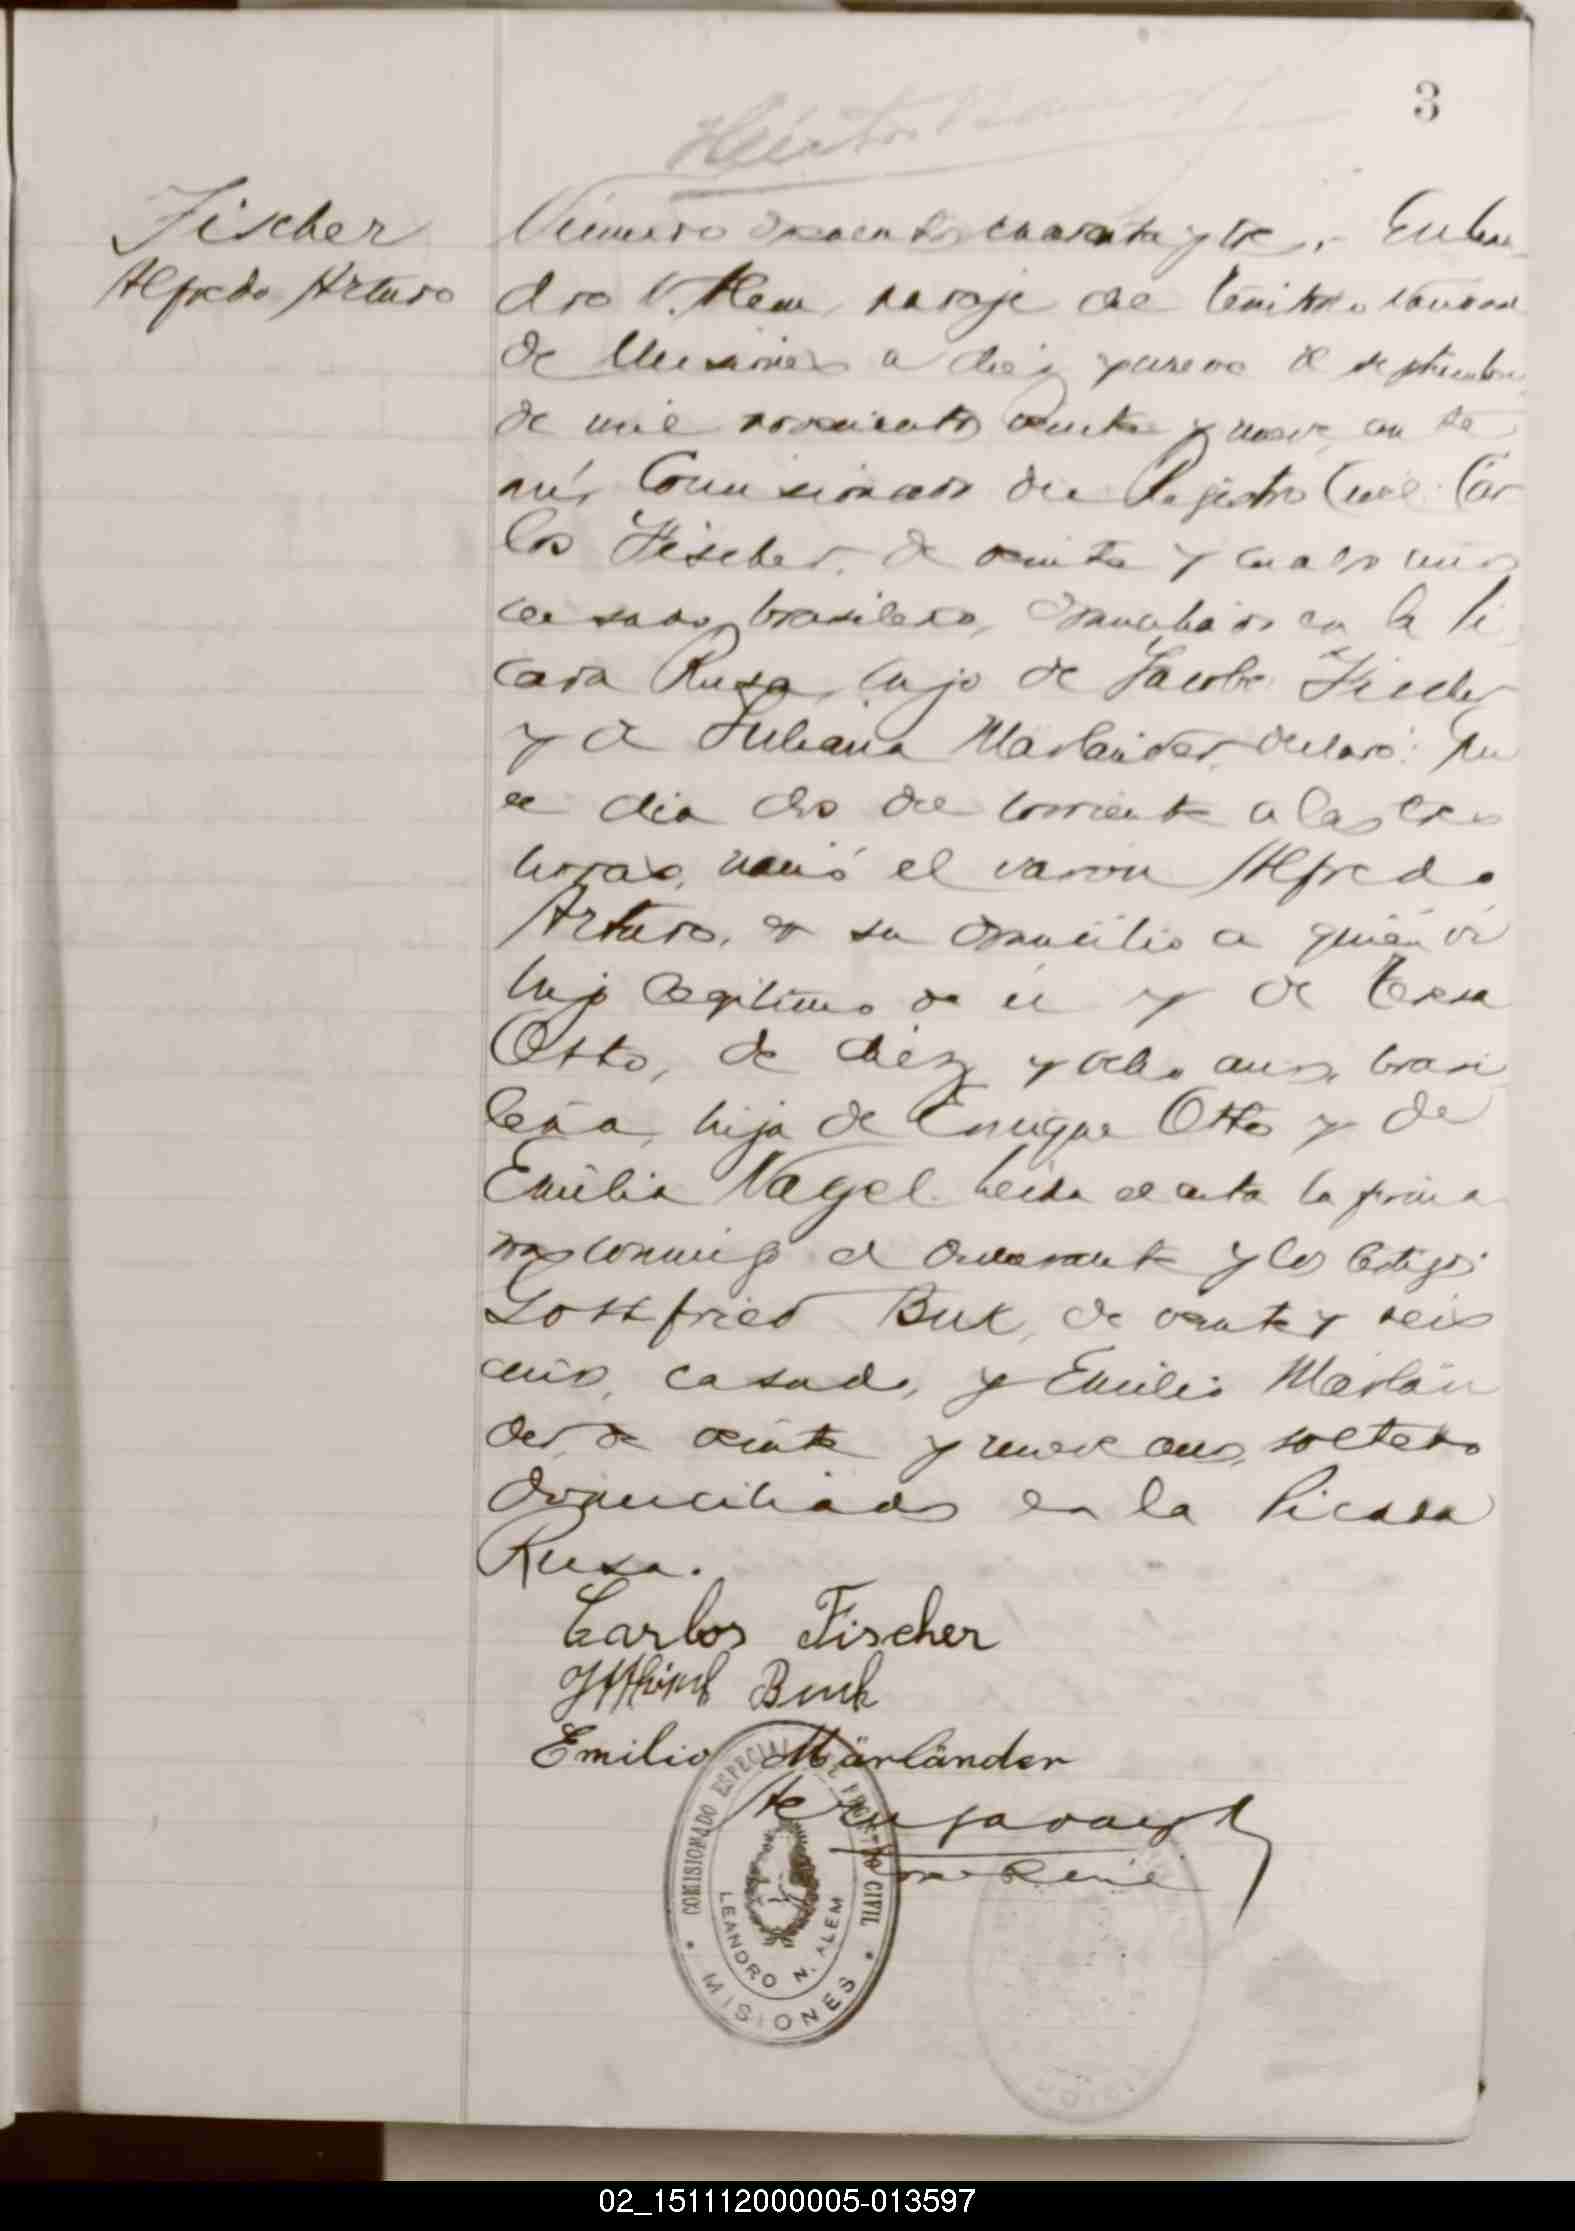 3
Fischer
Alfredo Arturo
Número doscientos cuarenta y tres.- En Lean
dro N. Alem, paraje del Territorio Nacional
de Misiones a diez y nueve de septiembre
de mil novecientos veinte y nueve, ante
mí, Comisionado del Registro Civil Car
los Fischer, de veinte y cuatro años
casado, brasilero, domiciliado en la Pi
cada Rusa, hijo de Jacobo Fischer
y de Juliana Marlander, declaró: Que
el dia dos del corriente a las tres
horas, nació el varon Alfredo
Arturo, en su domicilio a quien vi
hijo legitimo de él y de Teresa
Otto, de diez y ocho años, brasi
leña, hija de Enrique Otto y de
Emilia Nagel. Leida el acta la firma
ron conmigo el declarante y los testigos:
Gottfried Buk, de veinte y seis
años, casado, y Emilio Märlän
der, de veinte y nueve años, soltero
domiciliados en la Picada
Rusa.
Carlos Fischer
Buck
Emilio Märländer
COMISIONADO ESPECIAL DE REGISTRO CIVIL
LEANDRO N. ALEM
MISIONES
02_151112000005-013597